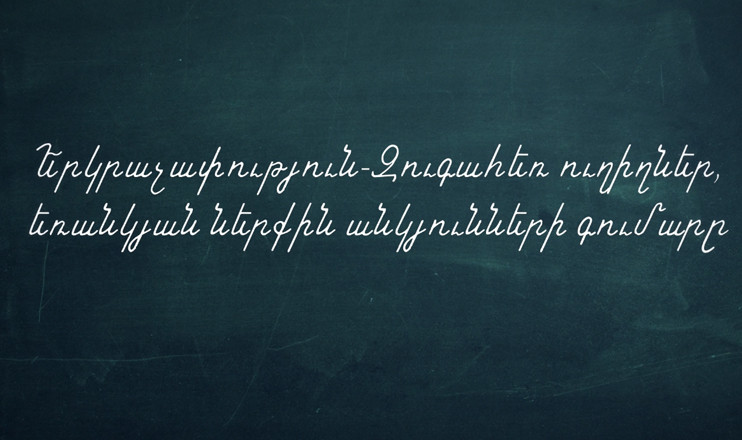 Երկրաչափություն-Զուգահեռ ուղիղներ,
եռանկյան ներքին անկյունների գումարը